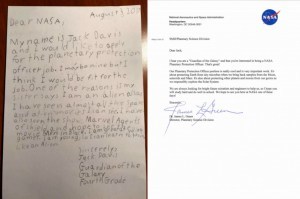 August 3, 2017
Dear NASA,
My name is Jack Davis
and I would like to apply
for the planetary protection
officer job. I may be nine but I
think I would be fit for the
job. One of the reasons is my
sister says I am an alien also
I have seen almost all the space
and alien movies I can see. I
the show Marvel Agents
of Shield and hope to see the
movie Men in Black. I am great at
video games. I am young, so I can
learn to think like an
Alien.
Sincerely,
Jack Davis
Guardian of the
Galaxy
Fourth Grade
National Aeronautics and Space Administration
Headquarters
Washington, DC 20546-0001
NASA
NASA Planetary Science Division
Dear Jack,
I hear you are a "Guardian of the Galaxy" and that you're interested in being a NASA
Planetary Protection Officer. That's great!
Our Planetary Protection Officer position is really cool and is very important work. It's
about protecting Earth from tiny microbes when we bring back samples from the Moon,
asteroids and Mars. It's also about protecting other planets and moons from our germs as
we responsibly explore the Solar System.
We are always looking for bright future scientists and engineers to help us, so I hope you
will study hard and do well in school. We hope to see you here at NASA one of these
days!
Sincerely,
Dr. James L. Green
Director, Planetary Science Division